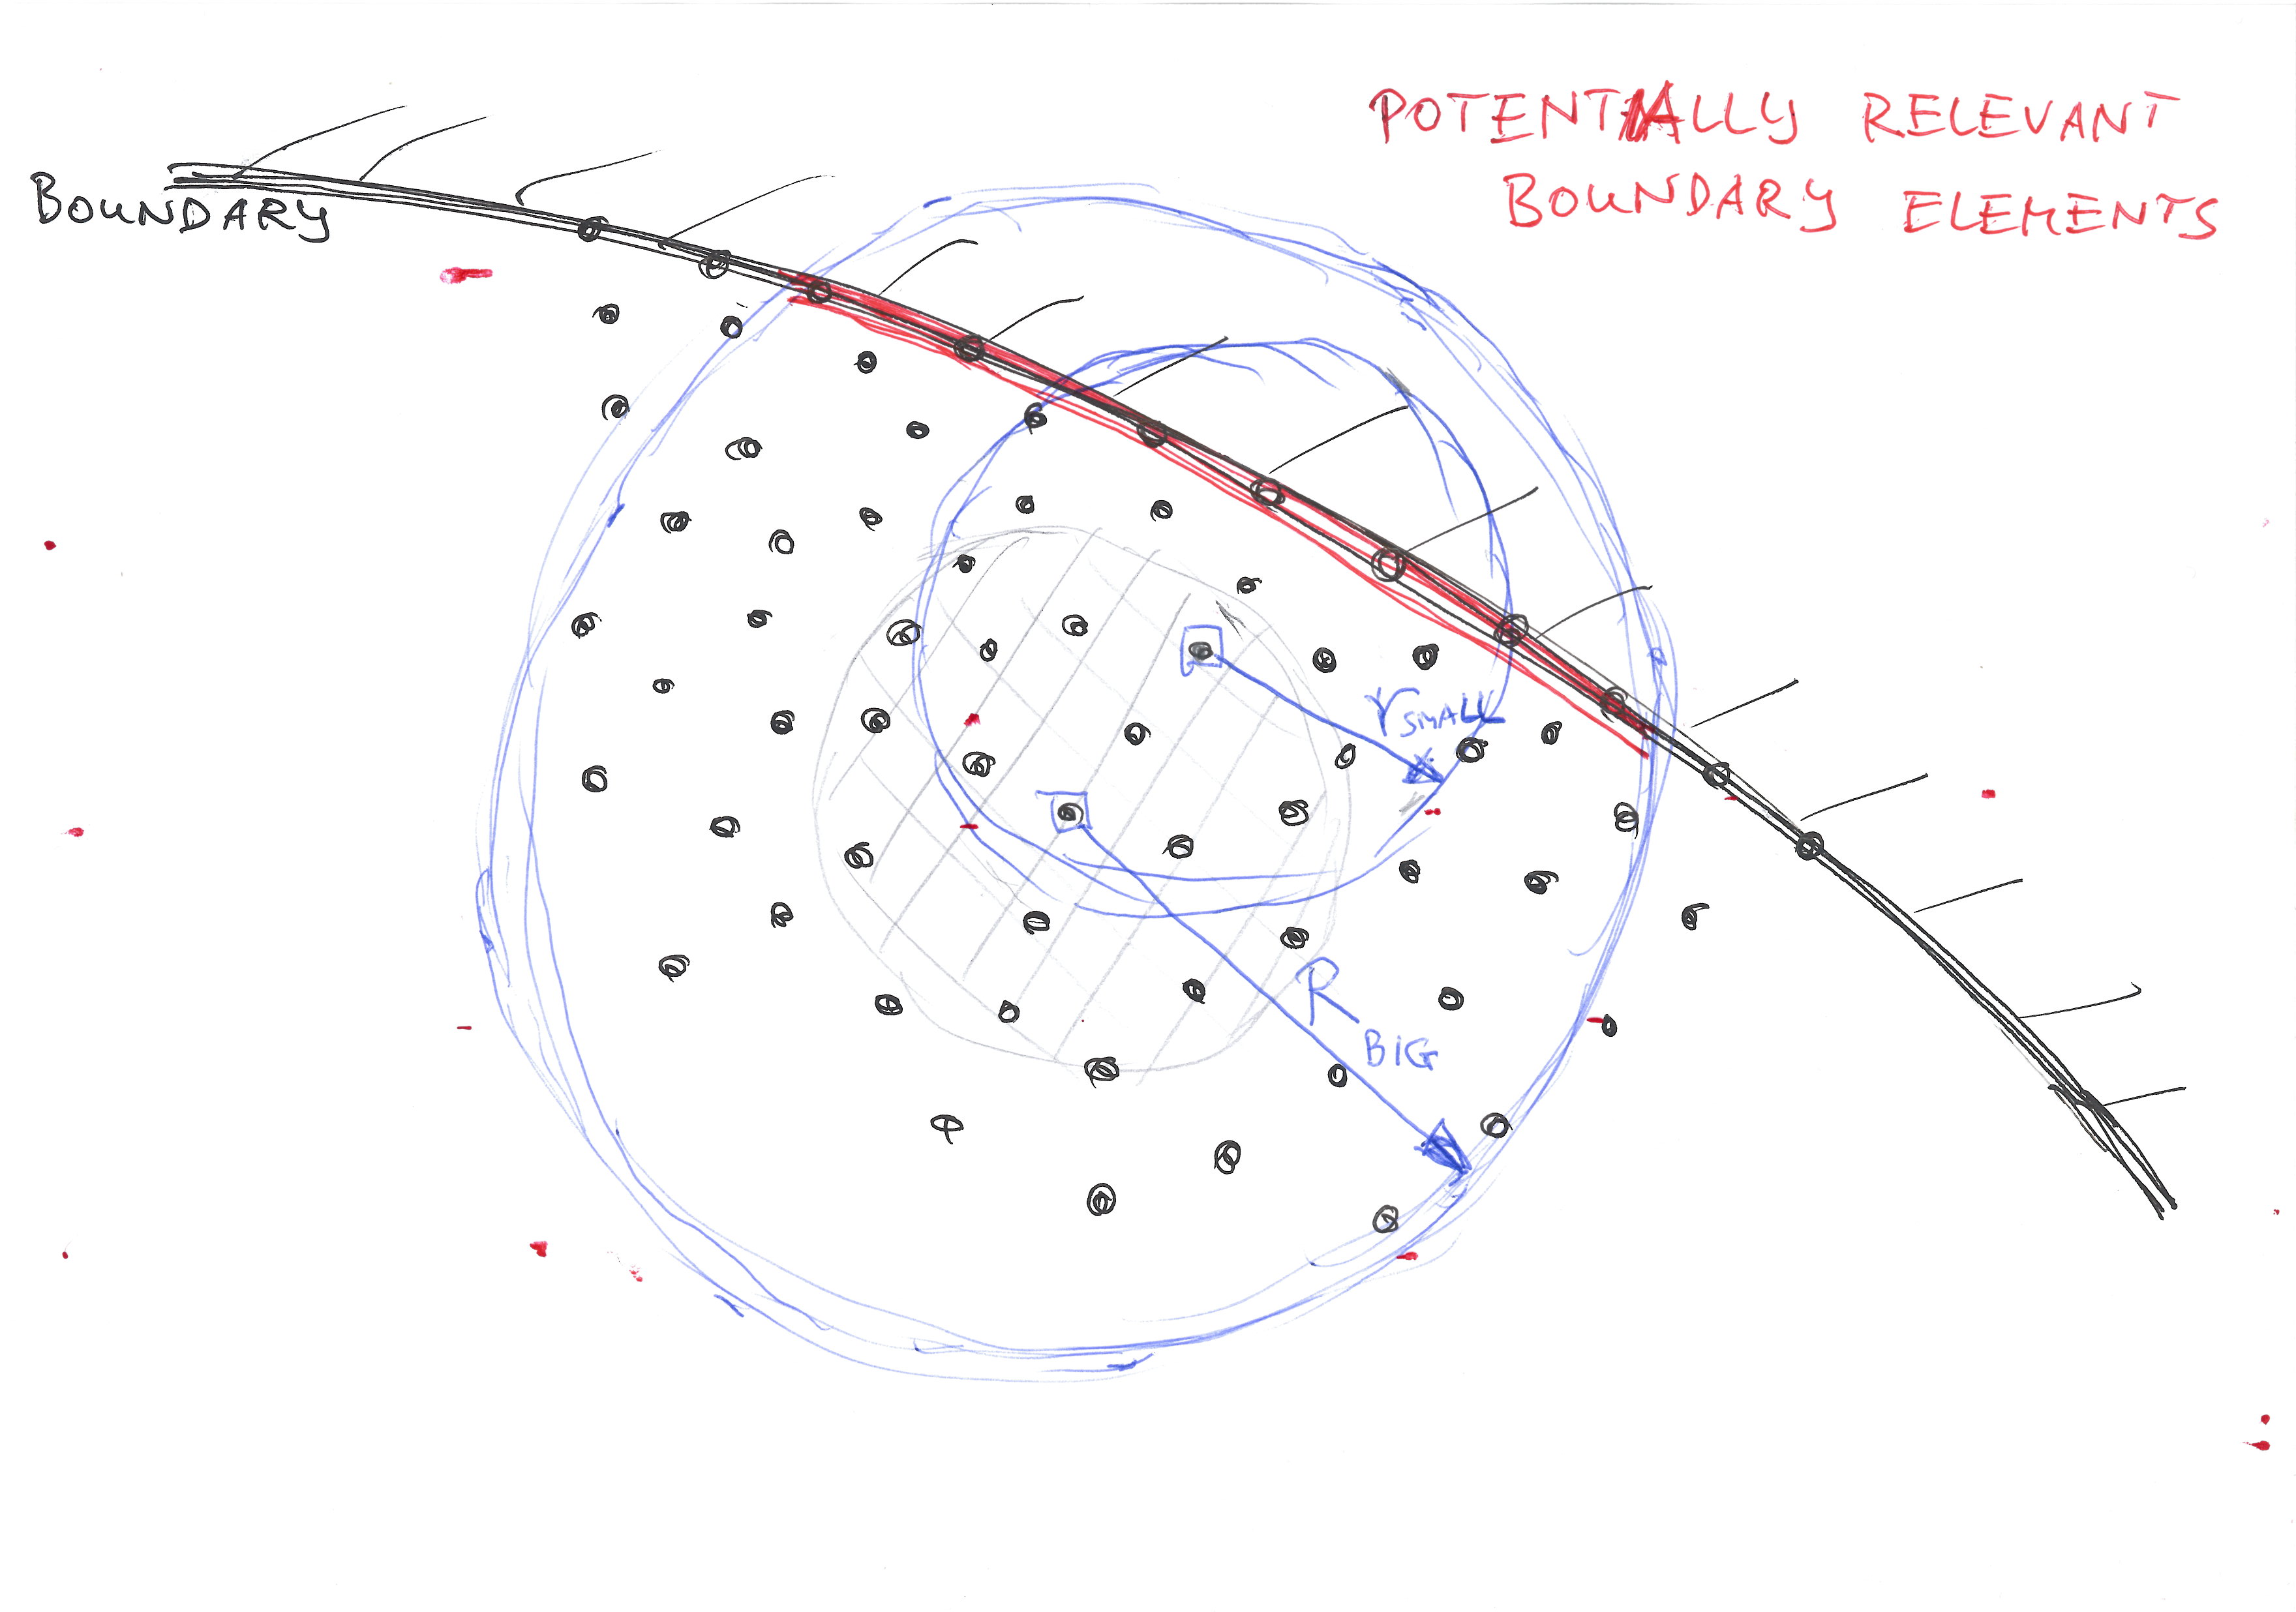 POTENTIALLY RELEVANT
BOUNDARY ELEMENTS
BOUNDARY
rSMALL
RBIG